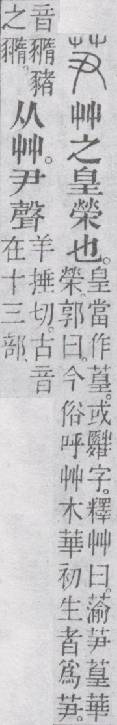 芛艸之皇榮也。
皇當作葟。或䑞字。釋艸曰。蕍芛葟華
榮。郭曰。今俗呼艸木華初生者爲芛。
音䝐豬
之䝐。
从艸。尹聲
羊捶切。古音
在十三部。